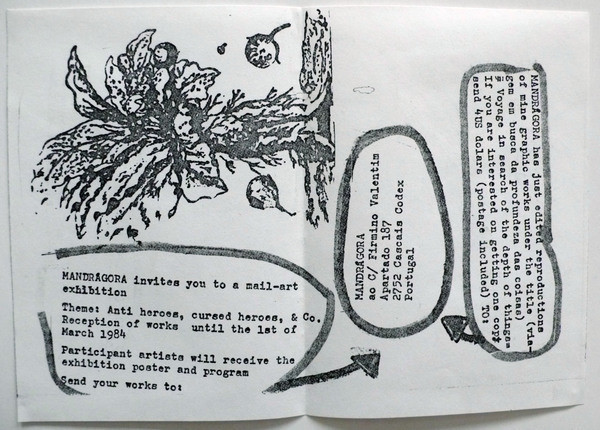 MANDRÁGORA invites you to a mail-art
exhibition
Theme: Anti heroes, cursed heroes, & Co.
Reception of works until the 1st of
March 1984
Participant artists will receive the
exhibition poster and program
Send your works to:
MANDRÁGORA
ao C/ Firmino Valentim
Apartado 187
2752 Cascais Codex
Portugal
MANDRÁGORA has just edited reproductions
of mine graphic works under the title (via-
gem em busca da profundeza das coisas)
Voyage in search of the depth of things=
If you are interested on getting one copy
send 4US dolars (postage included) TO: